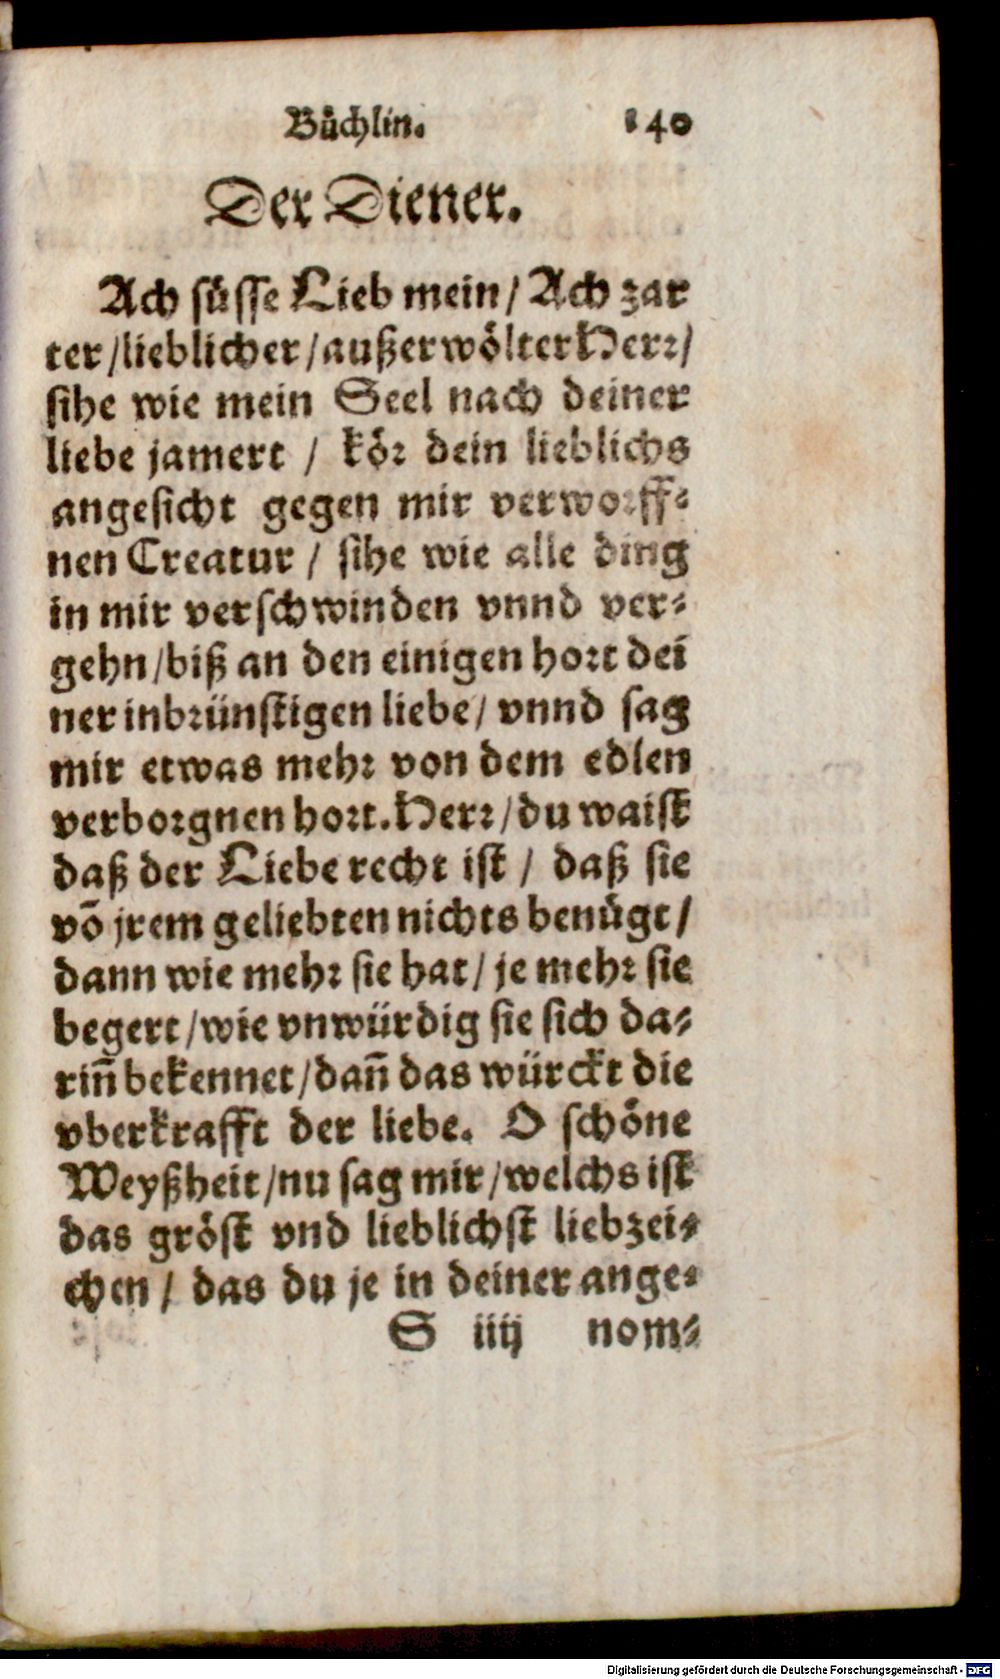 Bůchlin. 140
Der Diener.
Ach süsse Lieb mein / Ach zar
ter / lieblicher / außerwölter Herr /
sihe wie mein Seel nach deiner
liebe jamert / kör dein lieblichs
angesicht gegen mir verworff-
nen Creatur / sihe wie alle ding
in mir verschwinden vnnd ver-
gehn / biß an den einigen hort dei
ner inbrünstigen liebe / vnnd sag
mir etwas mehr von dem edlen
verborgnen hort. Herr / du waist
daß der Liebe recht ist / daß sie
võ jrem geliebten nichts benůgt /
dann wie mehr sie hat / je mehr sie
begert / wie vnwürdig sie sich da-
rin̄ bekennet / dan̄ das würckt die
vberkrafft der liebe. O schöne
Weyßheit / nu sag mir / welchs ist
das gröst vnd lieblichst liebzei-
chen / das du je in deiner ange-
S iiij nom-
Digitalisierung gefördert durch die Deutsche Forschungsgemeinschaft - DFG